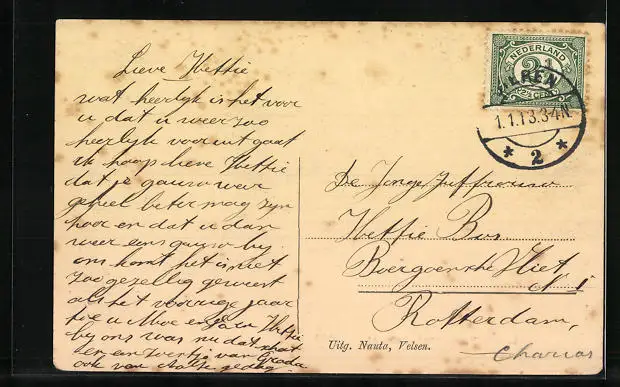 Lieve Wettie
wat heerlijk is het voor
u dat u weer zoo
heerlijk vooruit gaat
ik hoop lieve Wettie
dat je gauw weer
geheel beter mag zijn
hoor en dat u dan
weer eens gauw bij
ons komt het is niet
zoo gezellig geweest
als het vorrige jaar
toe u Moe en Pa en Wettie
bij ons was nu dat schat
en een zoentje van
ook van
NEDERLAND
2½
2½ CENT
1.1.13.3-4N
* 2 *
De Jonge Juffrouw
Wettie Bus
Boergoensche Vliet
Rotterdam,
Uitg. Nauta, Velsen.